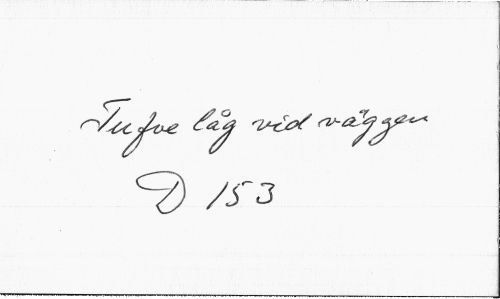 Tufve låg vid väggen
D 153